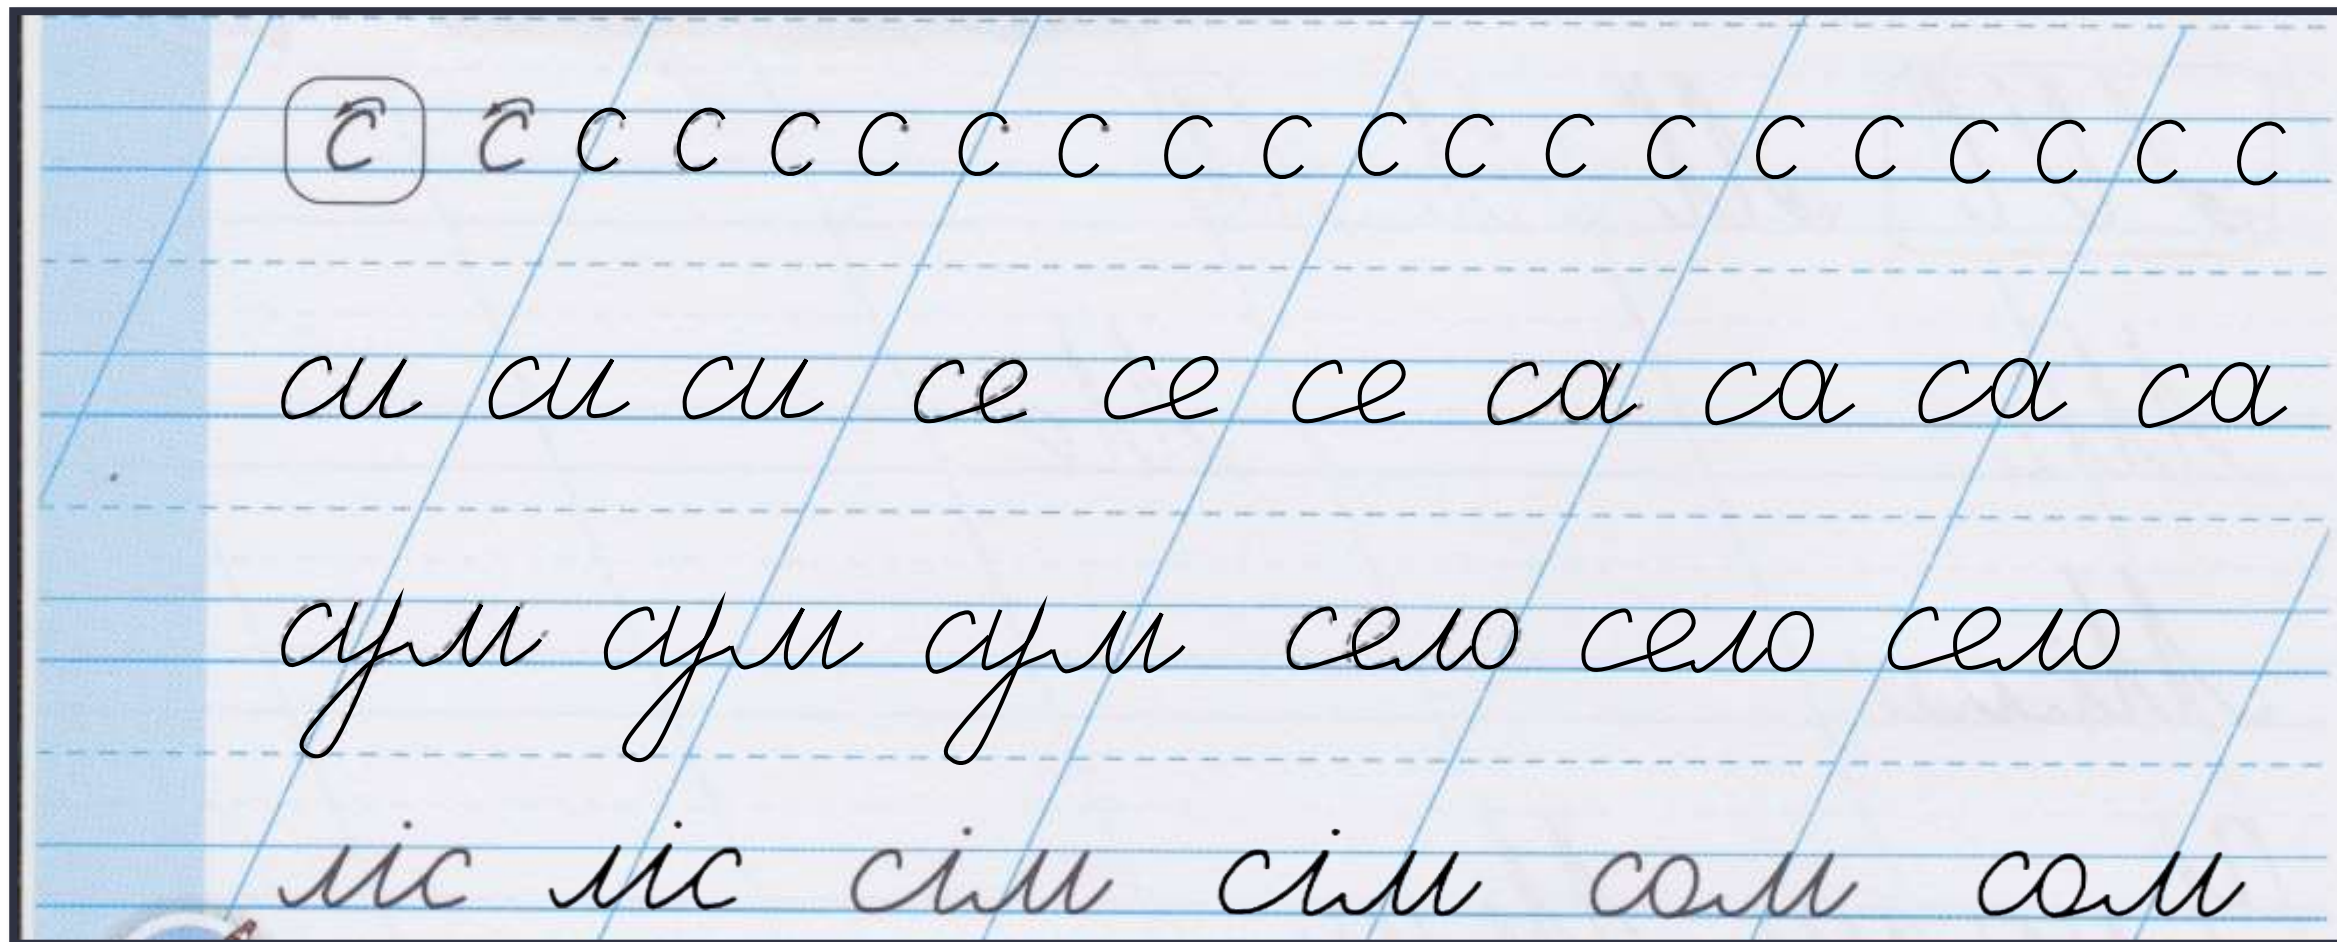 с с с с с с с с с с с с с с с с с с с с
си си си се се се са са са са
сум сум сум село село село
ліс ліс сім сім сом сом